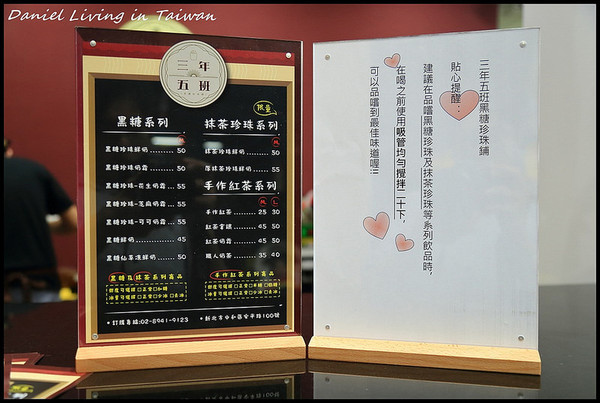 Daniel Living in Taiwan
三年
五班
黑糖系列
M
黑糖珍珠鮮奶 50
黑糖珍珠奶霜 50
黑糖珍珠-花生奶霜 55
黑糖珍珠-芝麻奶霜 55
黑糖珍珠-可可奶霜 55
黑糖鮮奶 45
黑糖仙草凍鮮奶 50
限量
抹茶珍珠系列
M
抹茶珍珠鮮奶 50
厚抹茶珍珠鮮奶 55
手作紅茶系列
M L
手作紅茶 25 30
紅茶拿鐵 45 50
紅茶奶霜 45 50
職人奶茶 35 40
黑糖及抹茶系列商品
手作紅茶系列商品
*訂購專線:02-8941-9123
*新北市中和區安平路100號
三年五班黑糖珍珠鋪
貼心提醒:
建議在品嚐黑糖珍珠及抹茶珍珠等系列飲品時,
在喝之前使用吸管均勻攪拌二十下,
可以品嚐到最佳味道喔!!!